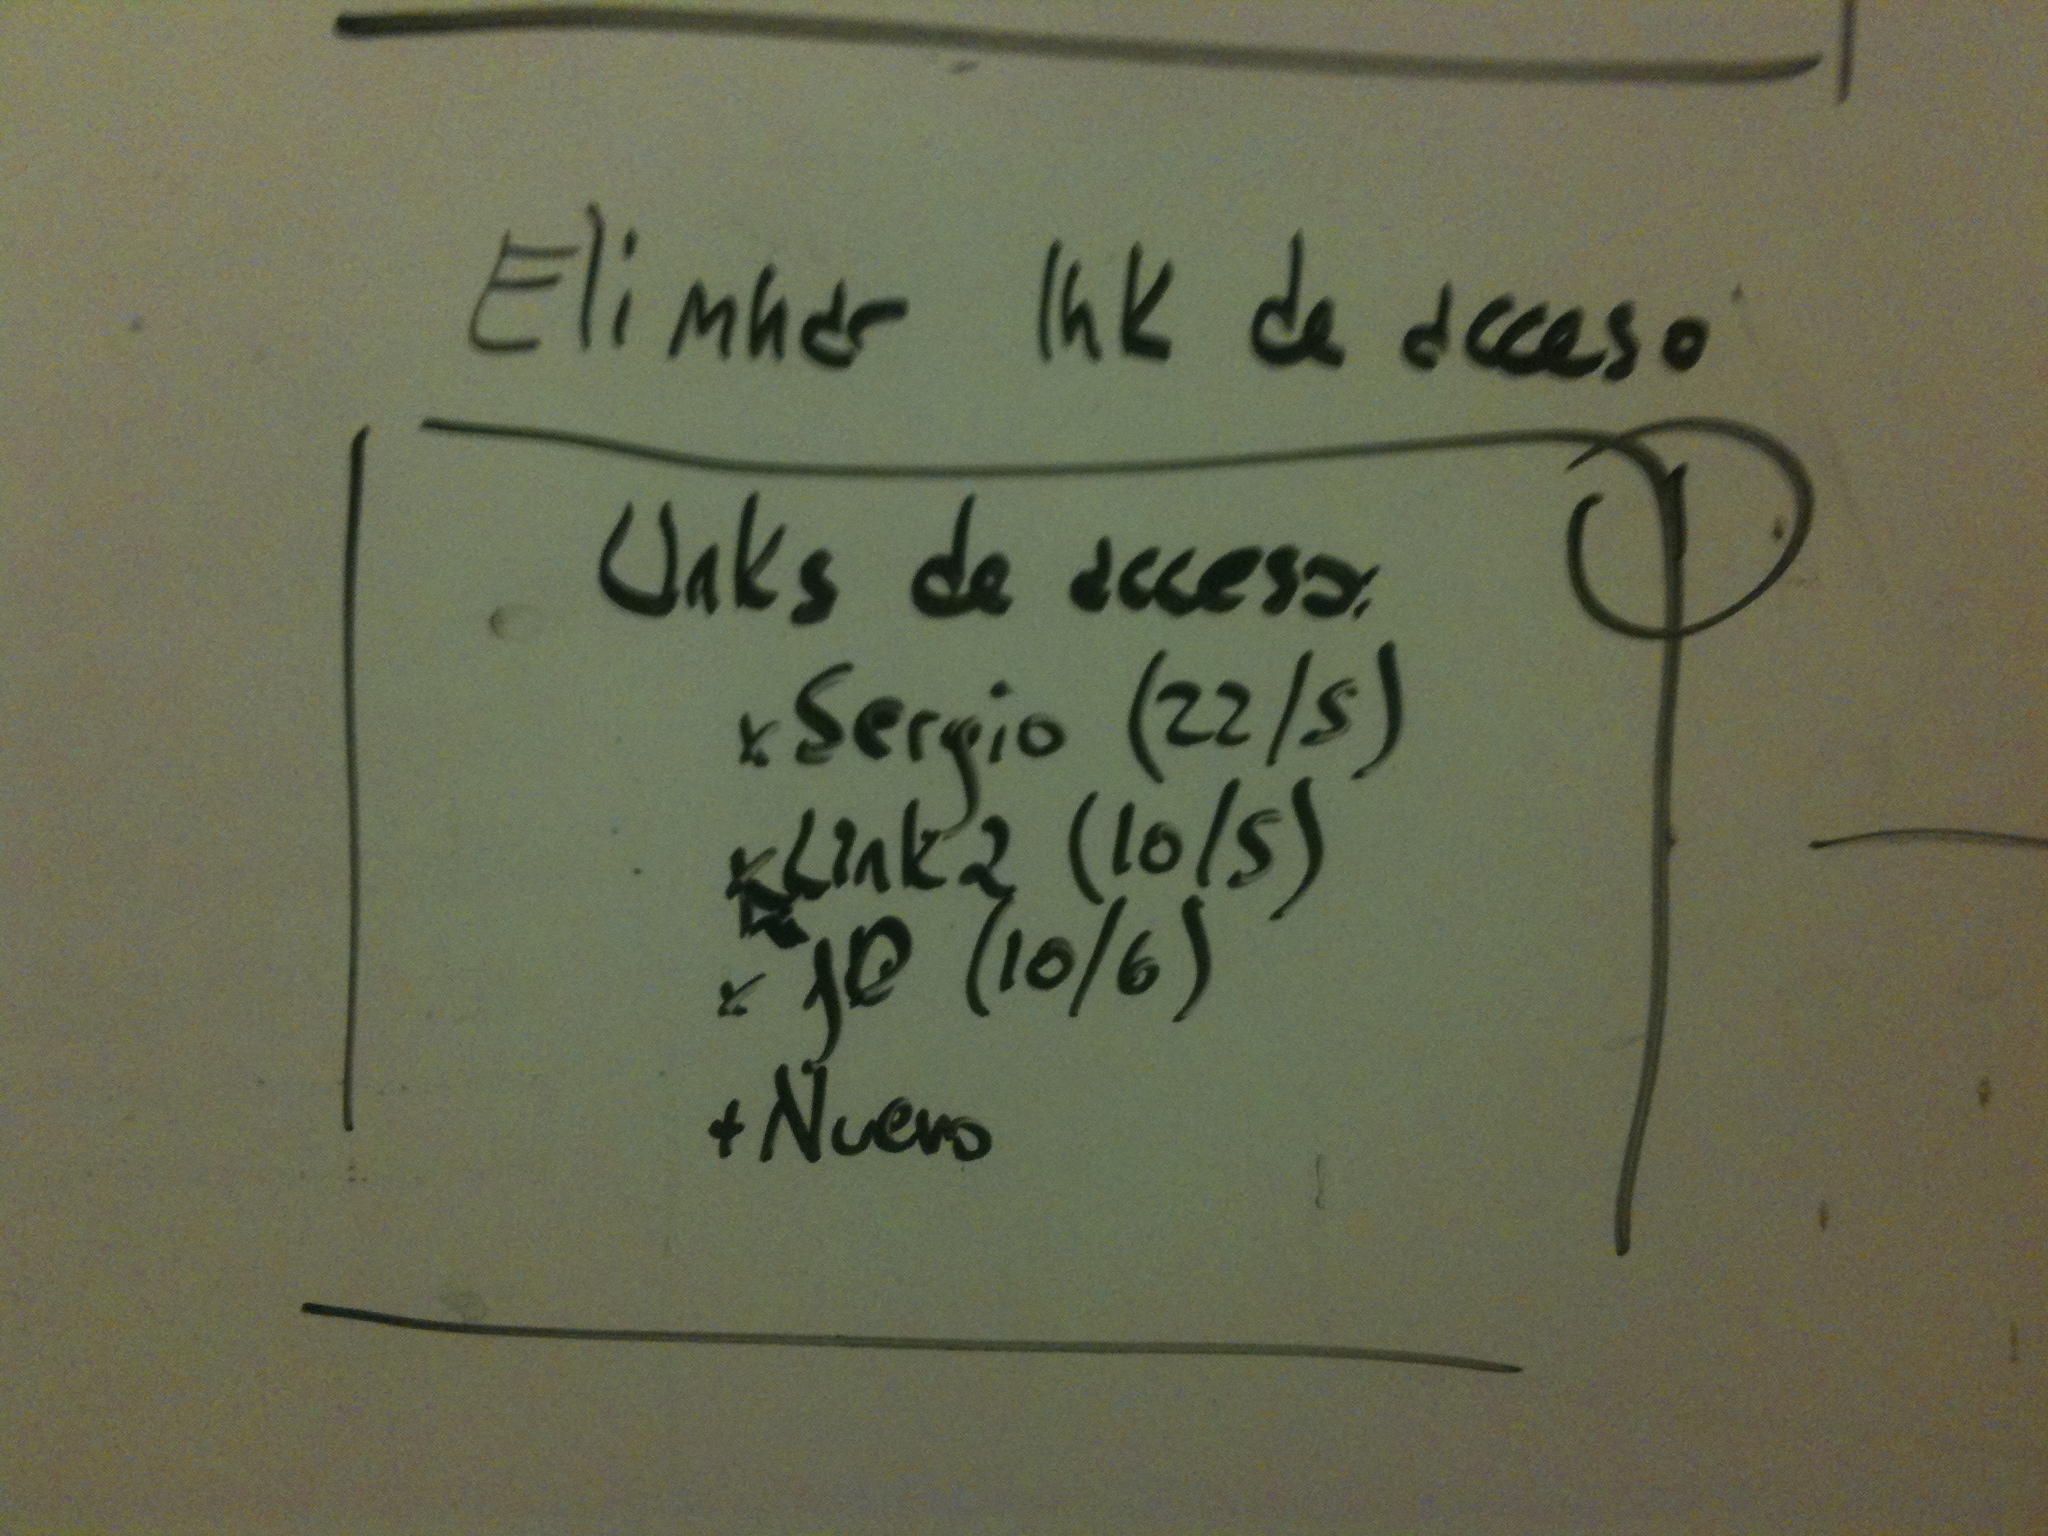 Eliminar link de acceso
Links de acceso:
x Sergio (22/5)
x Link 2 (10/5)
x JD (10/6)
+ Nuevo